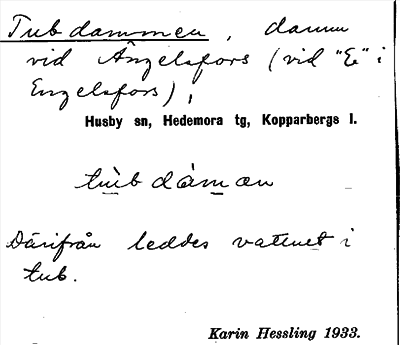 Tubdammen, damm
vid Ängelsfors (vid "E" i
Engelsfors),
Husby sn, Hedemora tg, Kopparbergs l.
tùbdámən
Därifrån leddes vattnet i
tub.
Karin Hessling 1933.